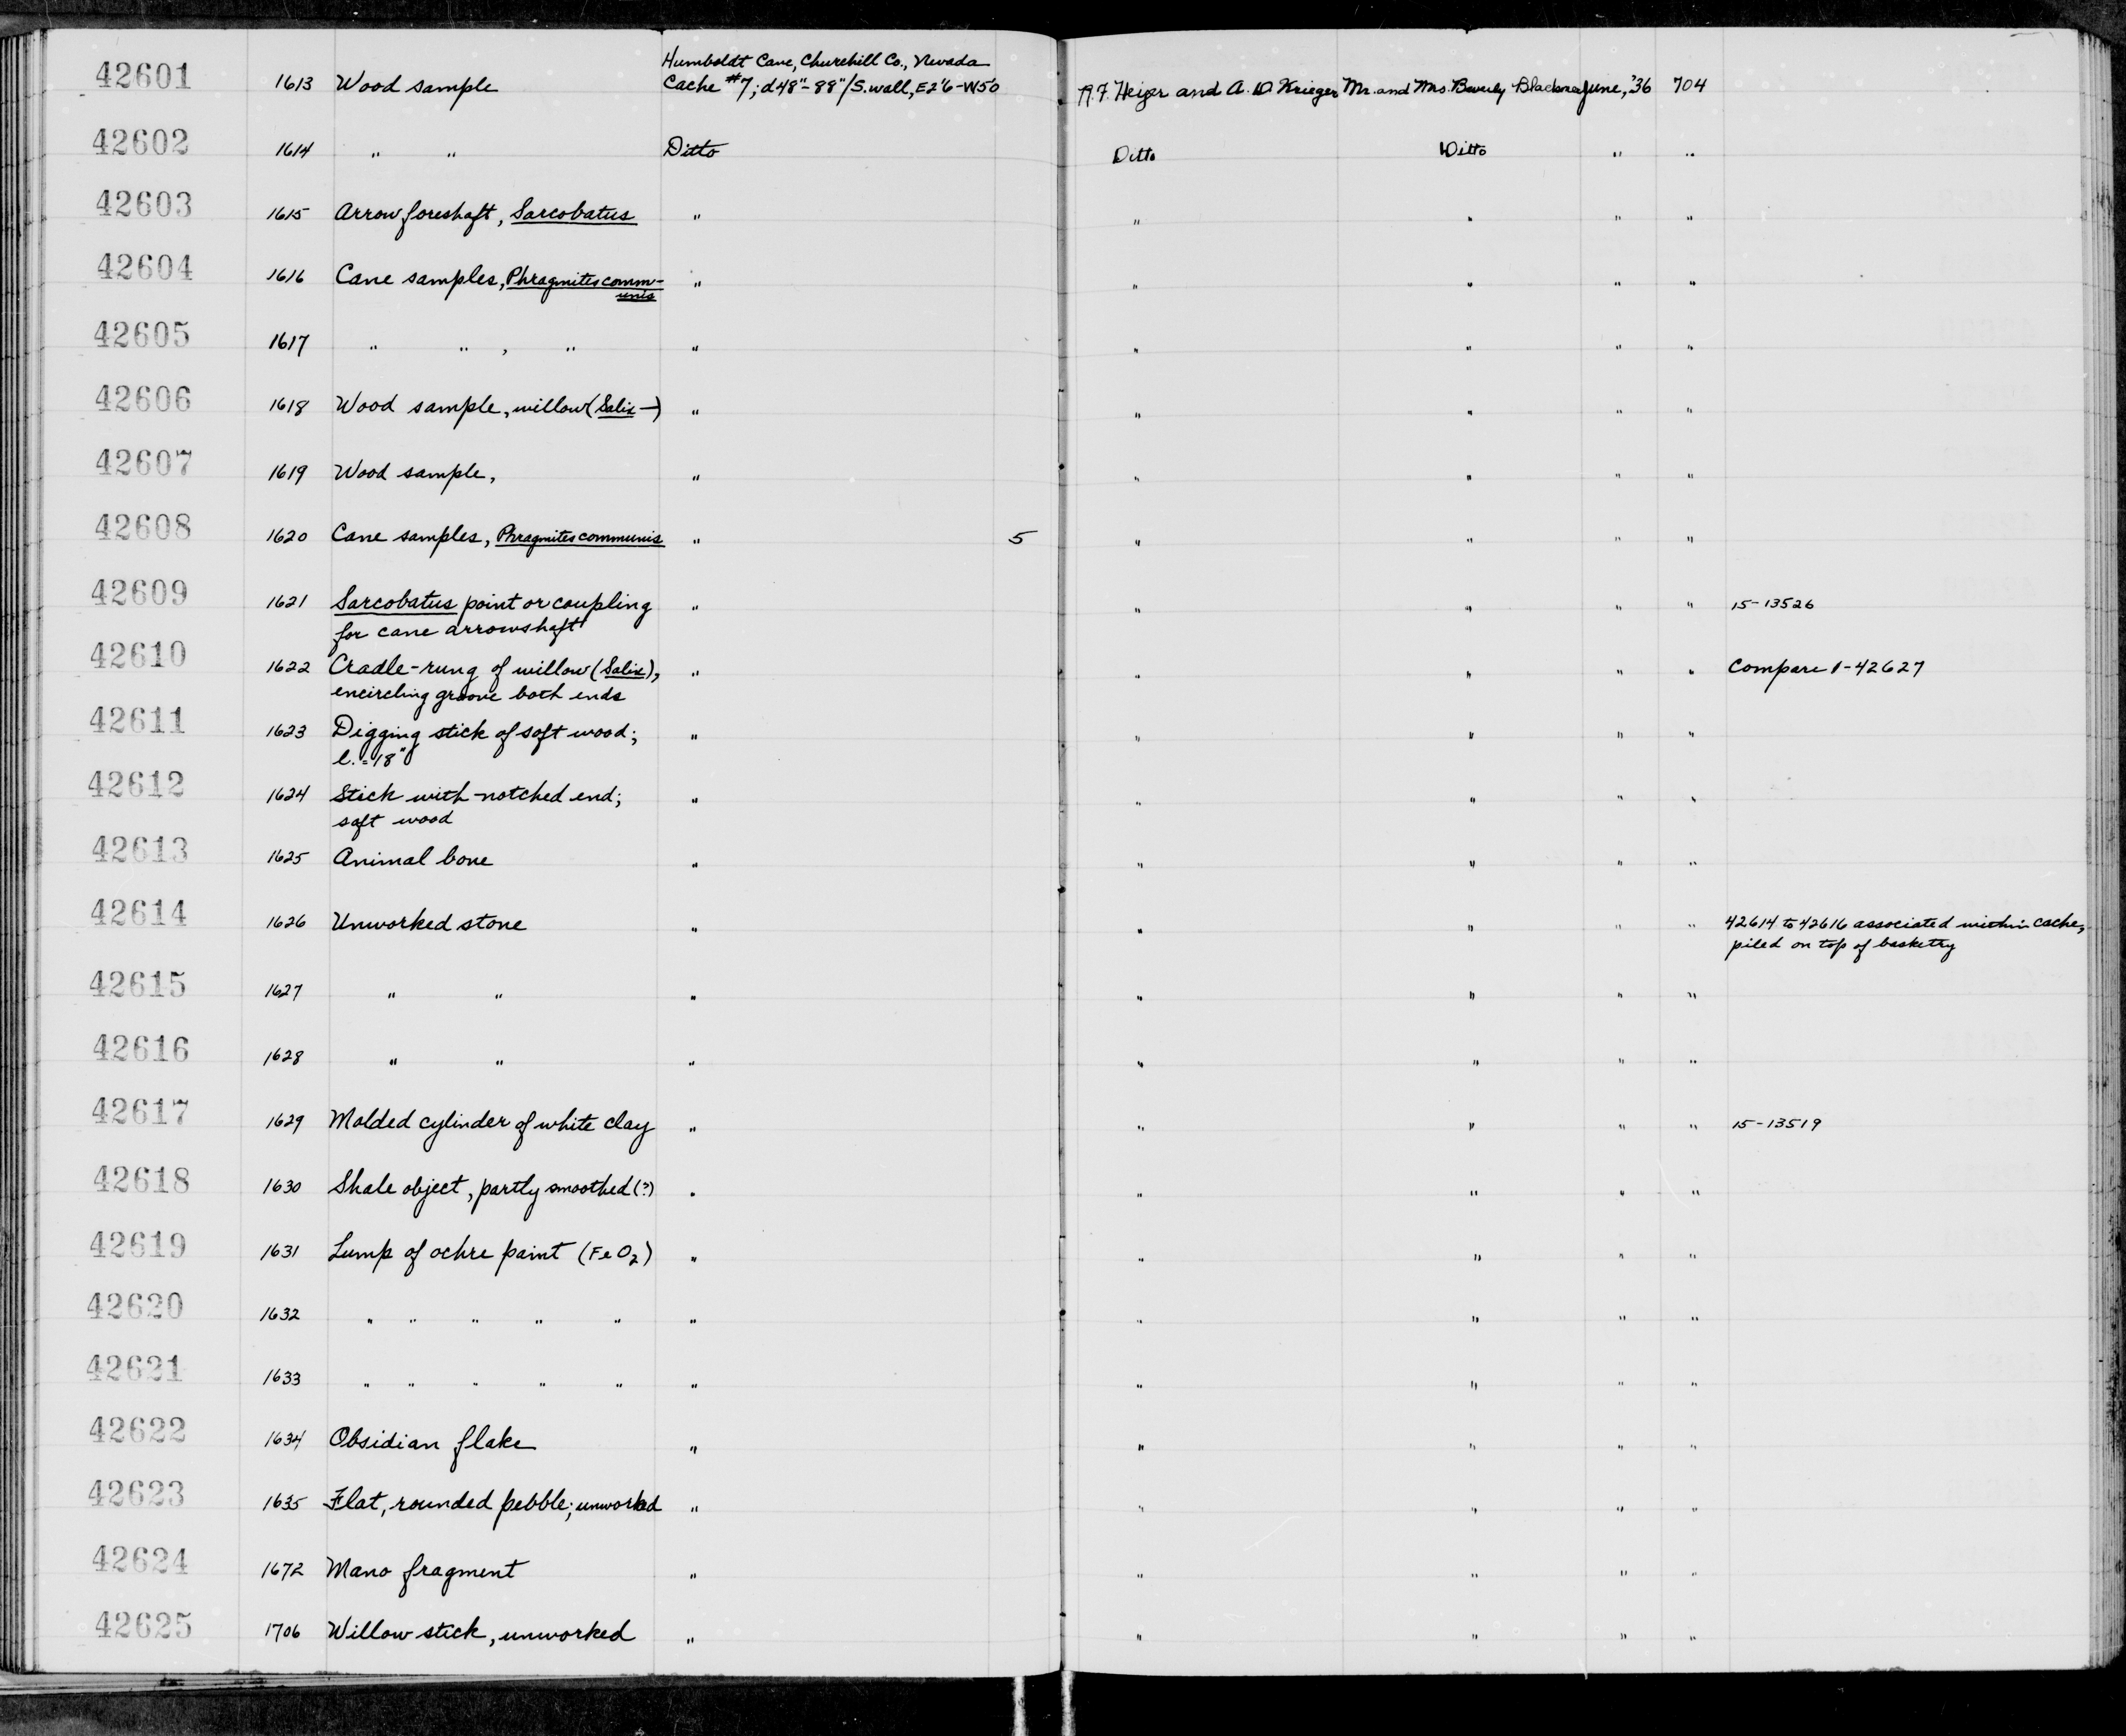 Humboldt Cave, Churchill Co., Nevada
42601 1613 Wood sample Cache #7; d48"-88"/S. wall, E2'6-W5'0 R.F. Heizer and A.D. Krieger Mr. and Mrs. Beverly Blackmer June, '36 704
42602 1614 " " Ditto Ditto Ditto " "
42603 1615 Arrow foreshaft, Sarcobatus " " " " "
42604 1616 Cane samples, Phragmites comm- " " " " "
unis
42605 1617 " " , " " " " " "
42606 1618 Wood sample, willow (Salix —) " " " " "
42607 1619 Wood sample, " " " " "
42608 1620 Cane samples, Phragmites communis " 5 " " " "
42609 1621 Sarcobatus point or coupling " " " " " 15-13526
for cane arrowshaft
42610 1622 Cradle-rung of willow (Salix), " " " " " Compare 1-42627
encircling groove both ends
42611 1623 Digging stick of soft wood; " " " " "
l. = 18"
42612 1624 Stick with notched end; " " " " "
soft wood
42613 1625 Animal bone " " " " "
42614 1626 Unworked stone " " " " " 42614 to 42616 associated within cache,
piled on top of basketry
42615 1627 " " " " " " "
42616 1628 " " " " " " "
42617 1629 Molded cylinder of white clay " " " " " 15-13519
42618 1630 Shale object, partly smoothed (?) " " " " "
42619 1631 Lump of ochre paint (FeO2) " " " " "
42620 1632 " " " " " " " " " "
42621 1633 " " " " " " " " " "
42622 1634 Obsidian flake " " " " "
42623 1635 Flat, rounded pebble; unworked " " " " "
42624 1672 Mano fragment " " " " "
42625 1706 Willow stick, unworked " " " " "